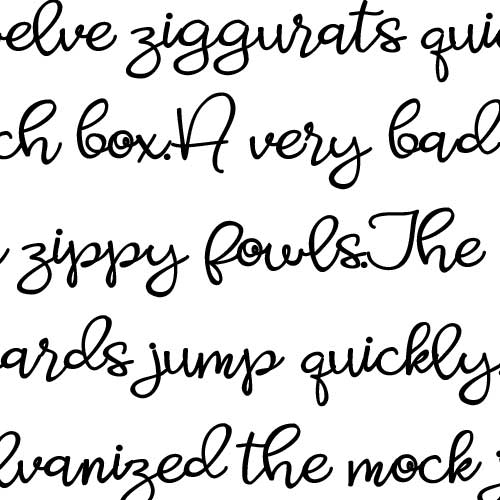 elve ziggurats qui
ch box.A very bad
zippy fowls.The
ards jump quickly.
lvanized the mock